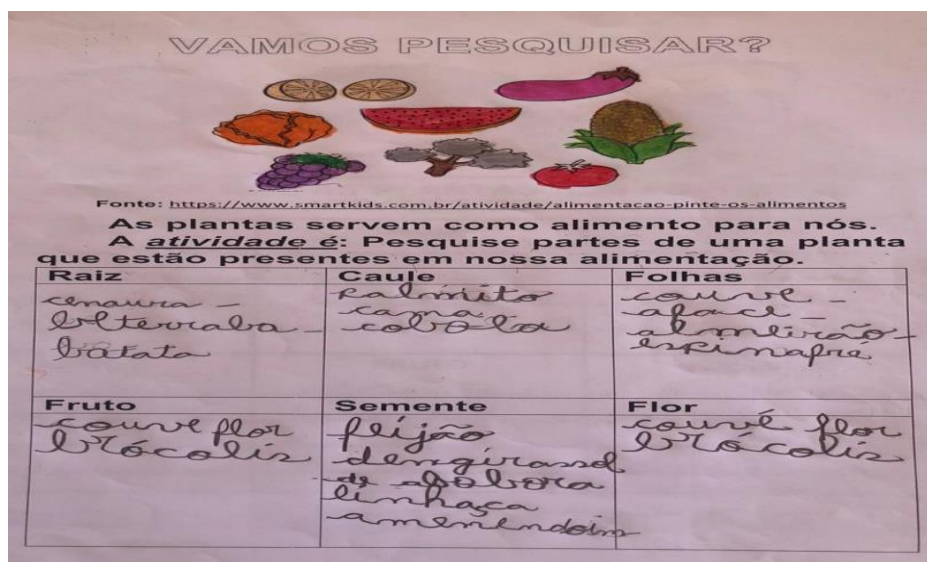 VAMOS PESQUISAR?
Fonte: https://www.smartkids.com.br/atividade/alimentacao-pinte-os-alimentos
As plantas servem como alimento para nós.
A atividade é: Pesquise partes de uma planta
que estão presentes em nossa alimentação.
Raiz
cenaura -
belterraba -
batata
Caule
Palmito
cana
cebola
Folhas
couve -
afaci -
almeirão -
espinafre
Fruto
couve flor
brócolis
Semente
feijão
dengirassol
de abobora
linhaça
amenendoim
Flor
couvé flor
brócolis